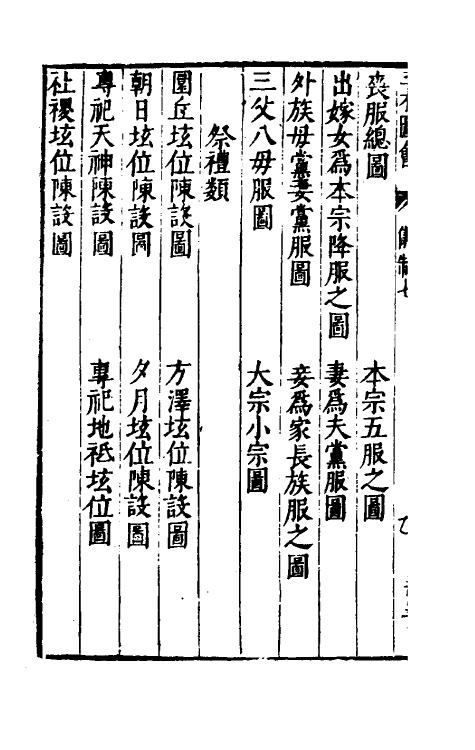 喪服總圖　本宗五服之圖
出嫁女爲本宗降服之圖　妻爲夫黨服圖
外族母黨妻黨服圖　妾爲家長族服之圖
三父八母服圖　大宗小宗圖
祭禮類
圜丘壇位陳設圖　方澤壇位陳設圖
朝日壇位陳設圖　夕月壇位陳設圖
專祀天神陳設圖　專祀地祗壇位圖
社稷壇位陳設圖